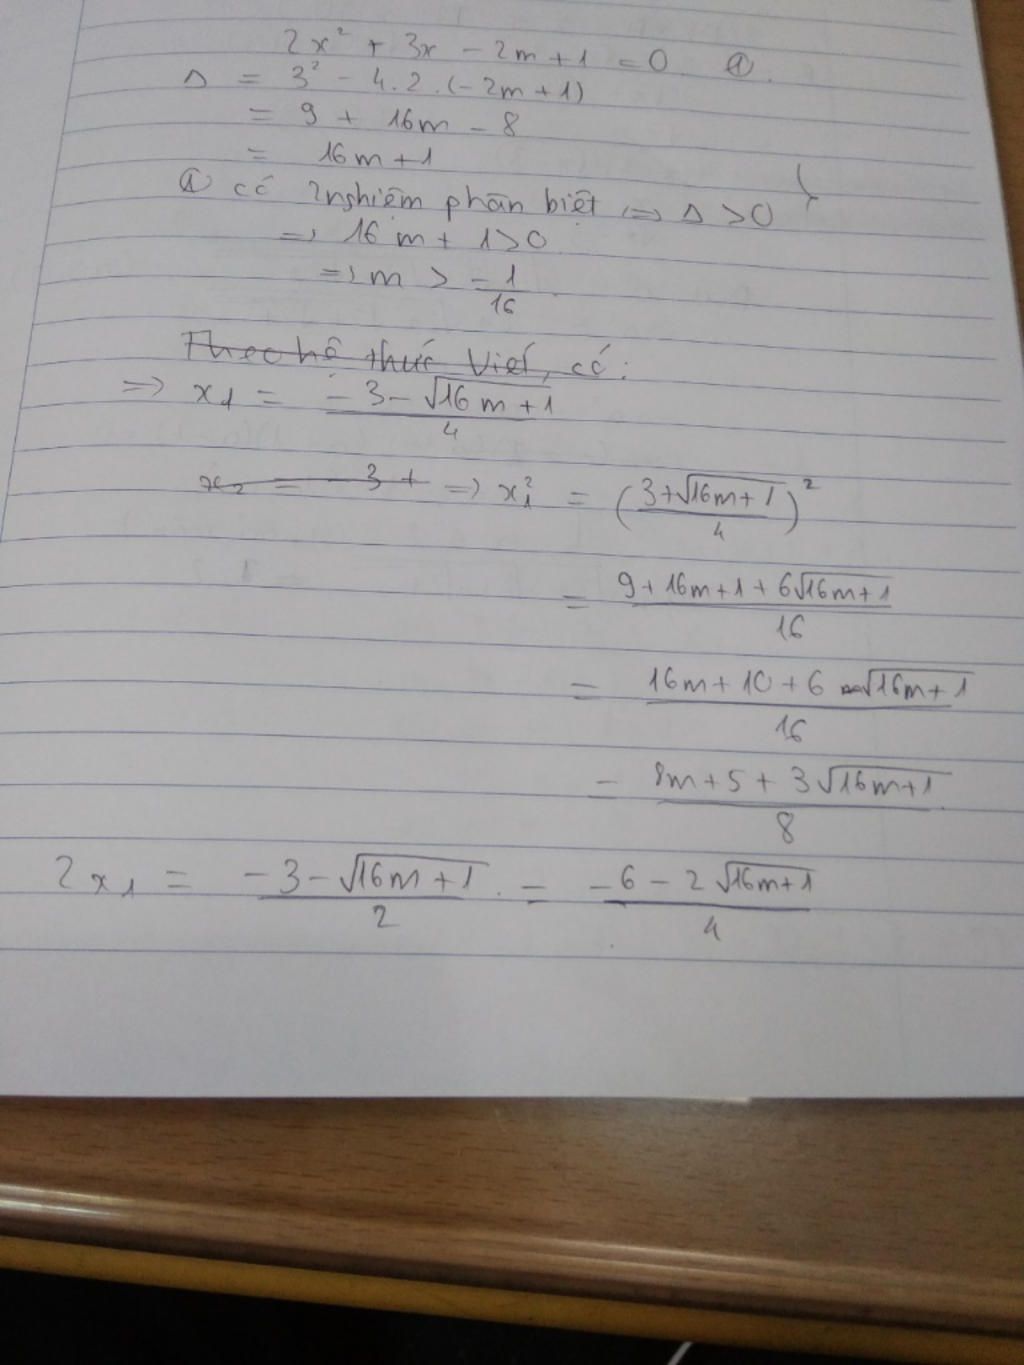 2x² + 3x - 2m + 1 = 0 ①.
Δ = 3² - 4.2.(-2m+1)
= 9 + 16m - 8
= 16m + 1
① có 2 nghiệm phân biệt => Δ > 0
=> 16m + 1 > 0
=> m > -1/16
Theo hệ thức Viét, có:
=> x₁ = (-3 - √(16m+1))/4
x₂ = -3 + => x₁² = ((3+√(16m+1))/4)²
= (9 + 16m + 1 + 6√(16m+1))/16
= (16m + 10 + 6√(16m+1))/16
= (8m + 5 + 3√(16m+1))/8
2x₁ = (-3 - √(16m+1))/2 = (-6 - 2√(16m+1))/4